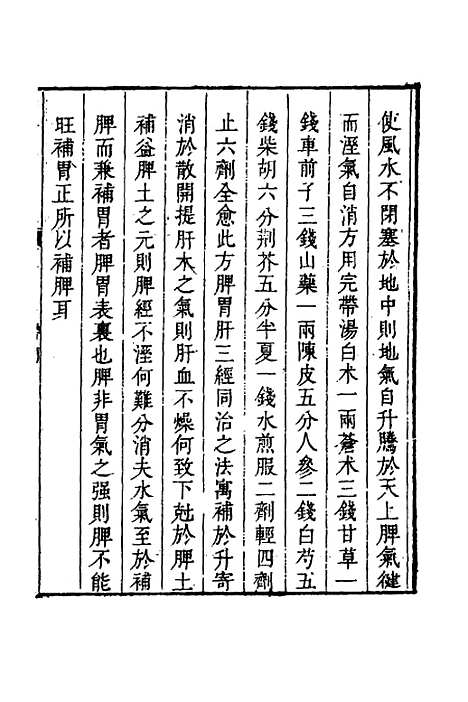 使風水不閉塞於地中則地氣自升騰於天上脾氣健
而溼氣自消方用完帶湯白术一兩蒼术三錢甘草一
錢車前子三錢山藥一兩陳皮五分人參二錢白芍五
錢柴胡六分荆芥五分半夏一錢水煎服二劑輕四劑
止六劑全愈此方脾胃肝三經同治之法寓補於升寄
消於散開提肝木之氣則肝血不燥何致下尅於脾土
補益脾土之元則脾經不溼何難分消夫水氣至於補
脾而兼補胃者脾胃表裏也脾非胃氣之强則脾不能
旺補胃正所以補脾耳